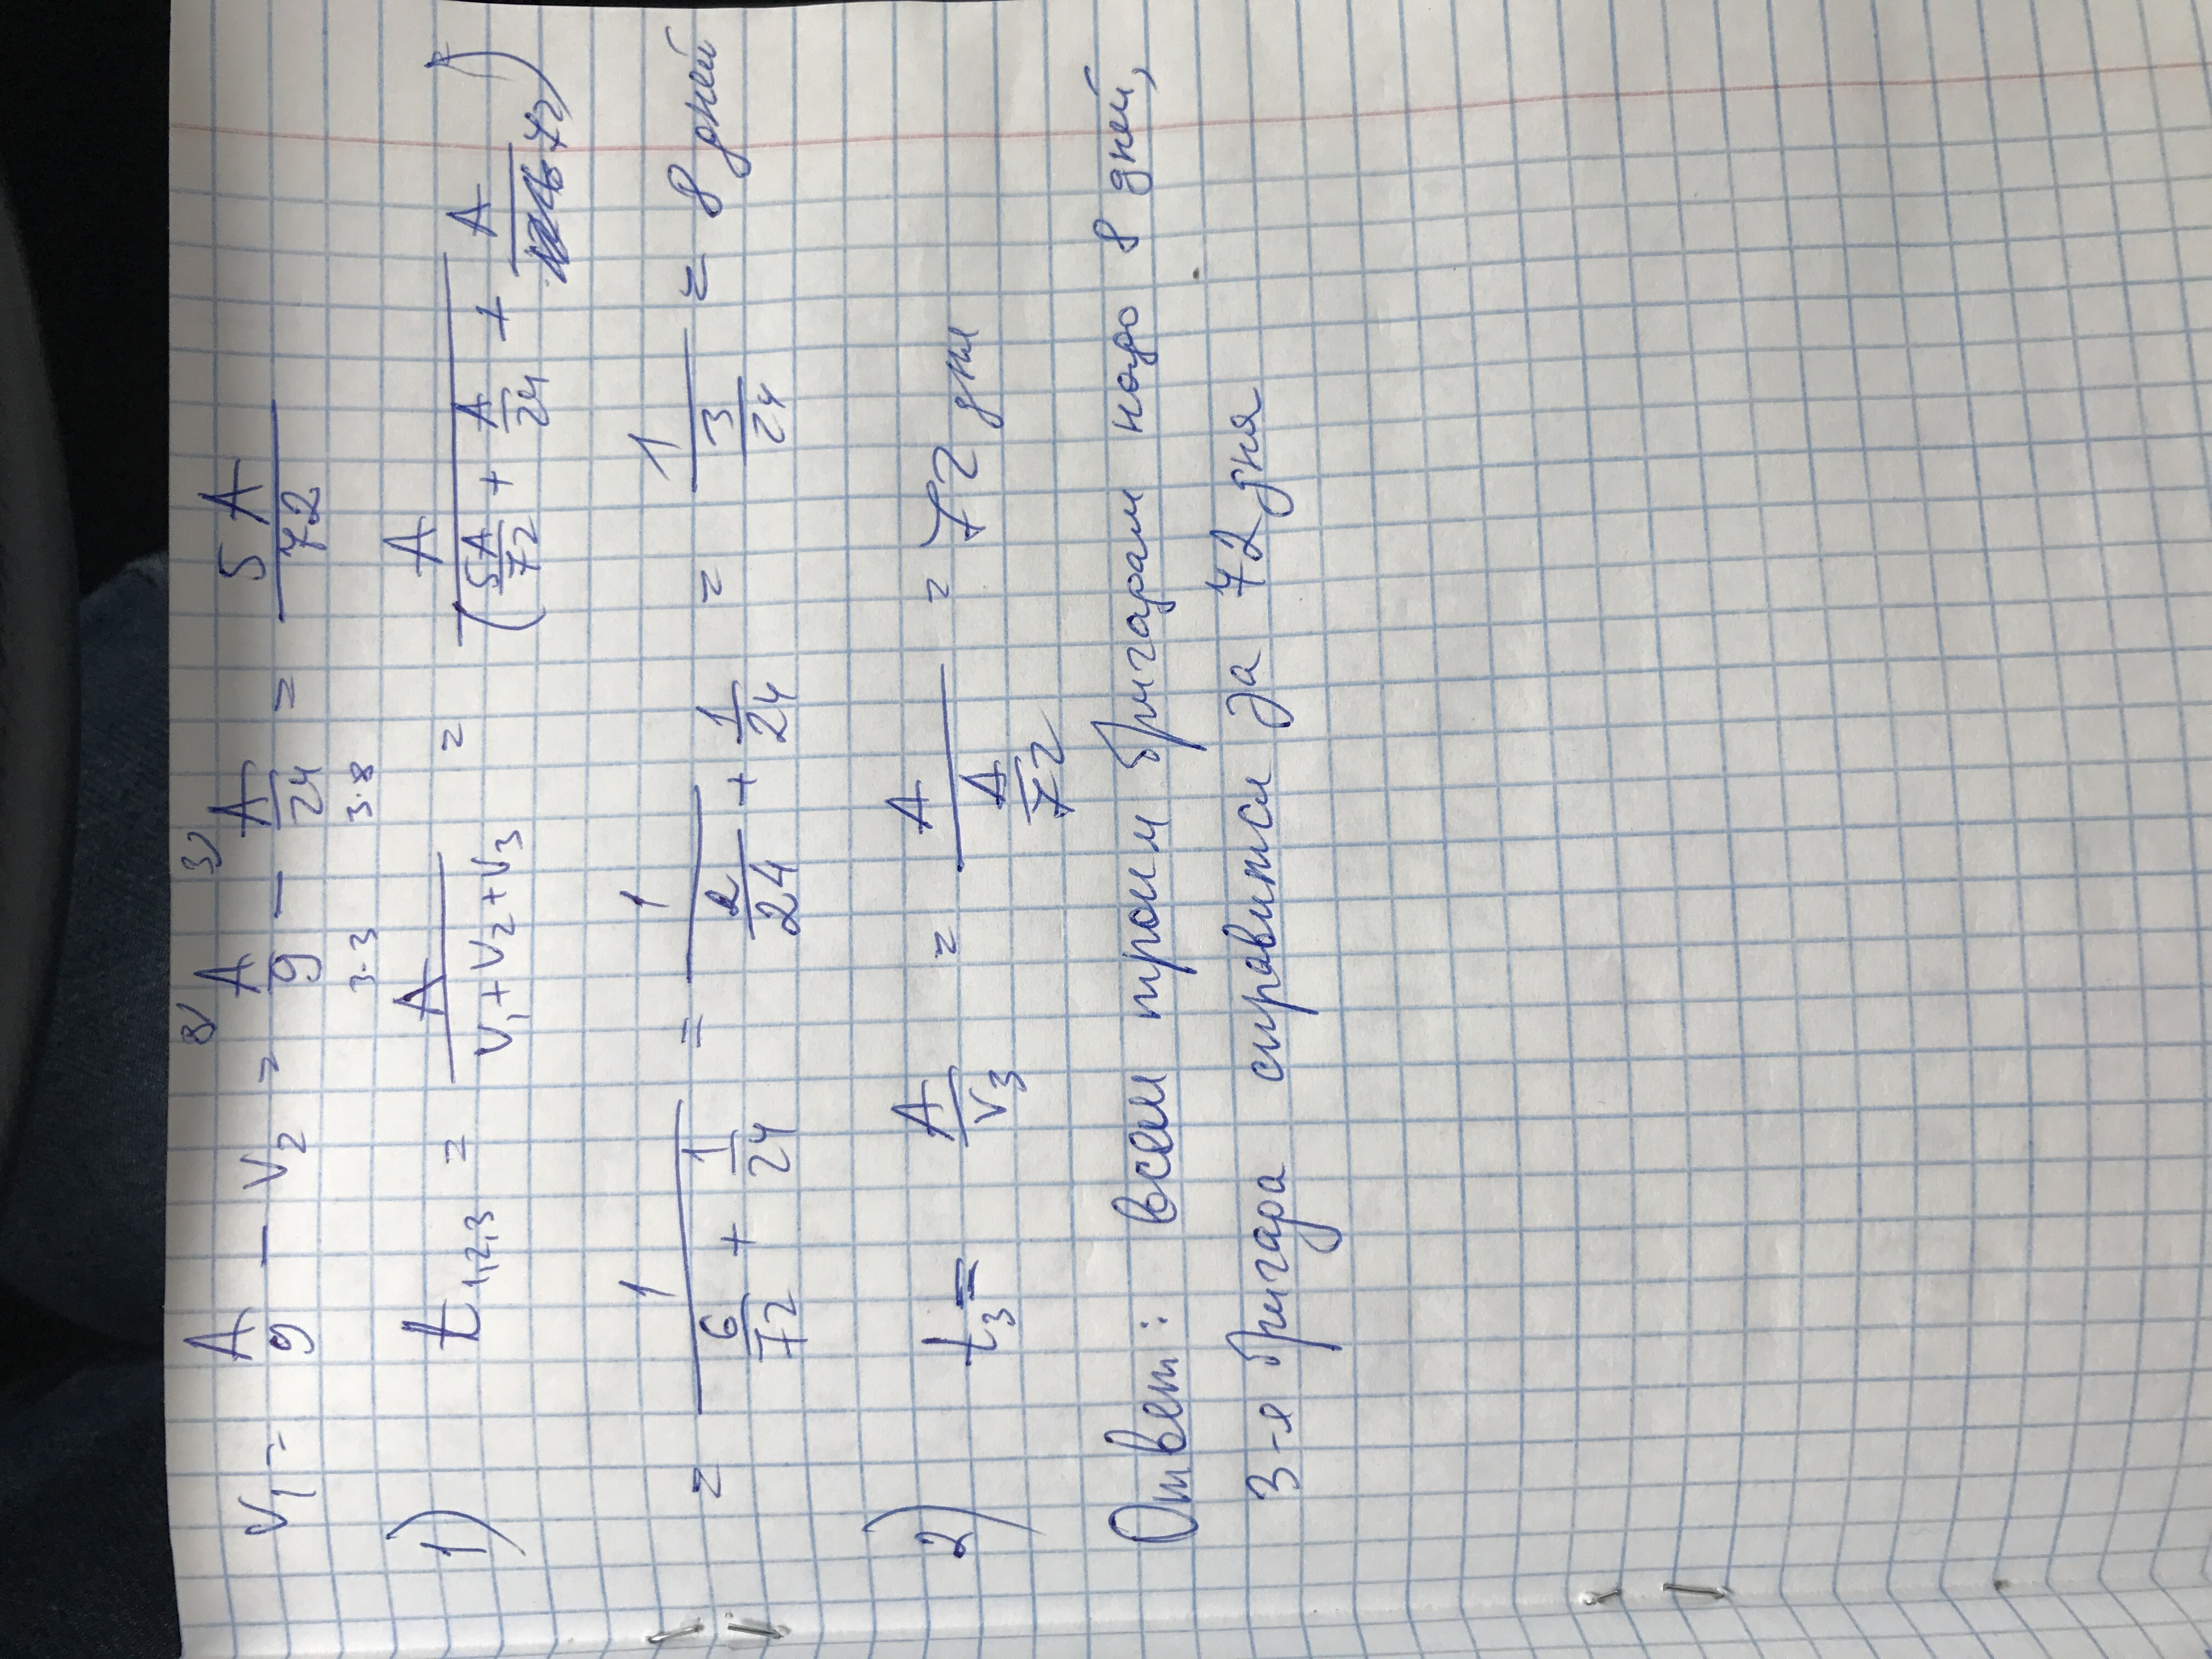 V₁ = A/9 − V₂ = ⁸⁾A/9 − ³⁾A/24 = 5A/72
3·3 3·8
1) t₁,₂,₃ = A/(V₁+V₂+V₃) = A/(5A/72 + A/24 + A/72)
= 1/(6/72 + 1/24) = 1/(2/24 + 1/24) = 1/(3/24) = 8 дней
2) t₃ = A/V₃ = A/(A/72) = 72 дня
Ответ: всем троим бригадам надо 8 дней,
3-я бригада справится за 72 дня